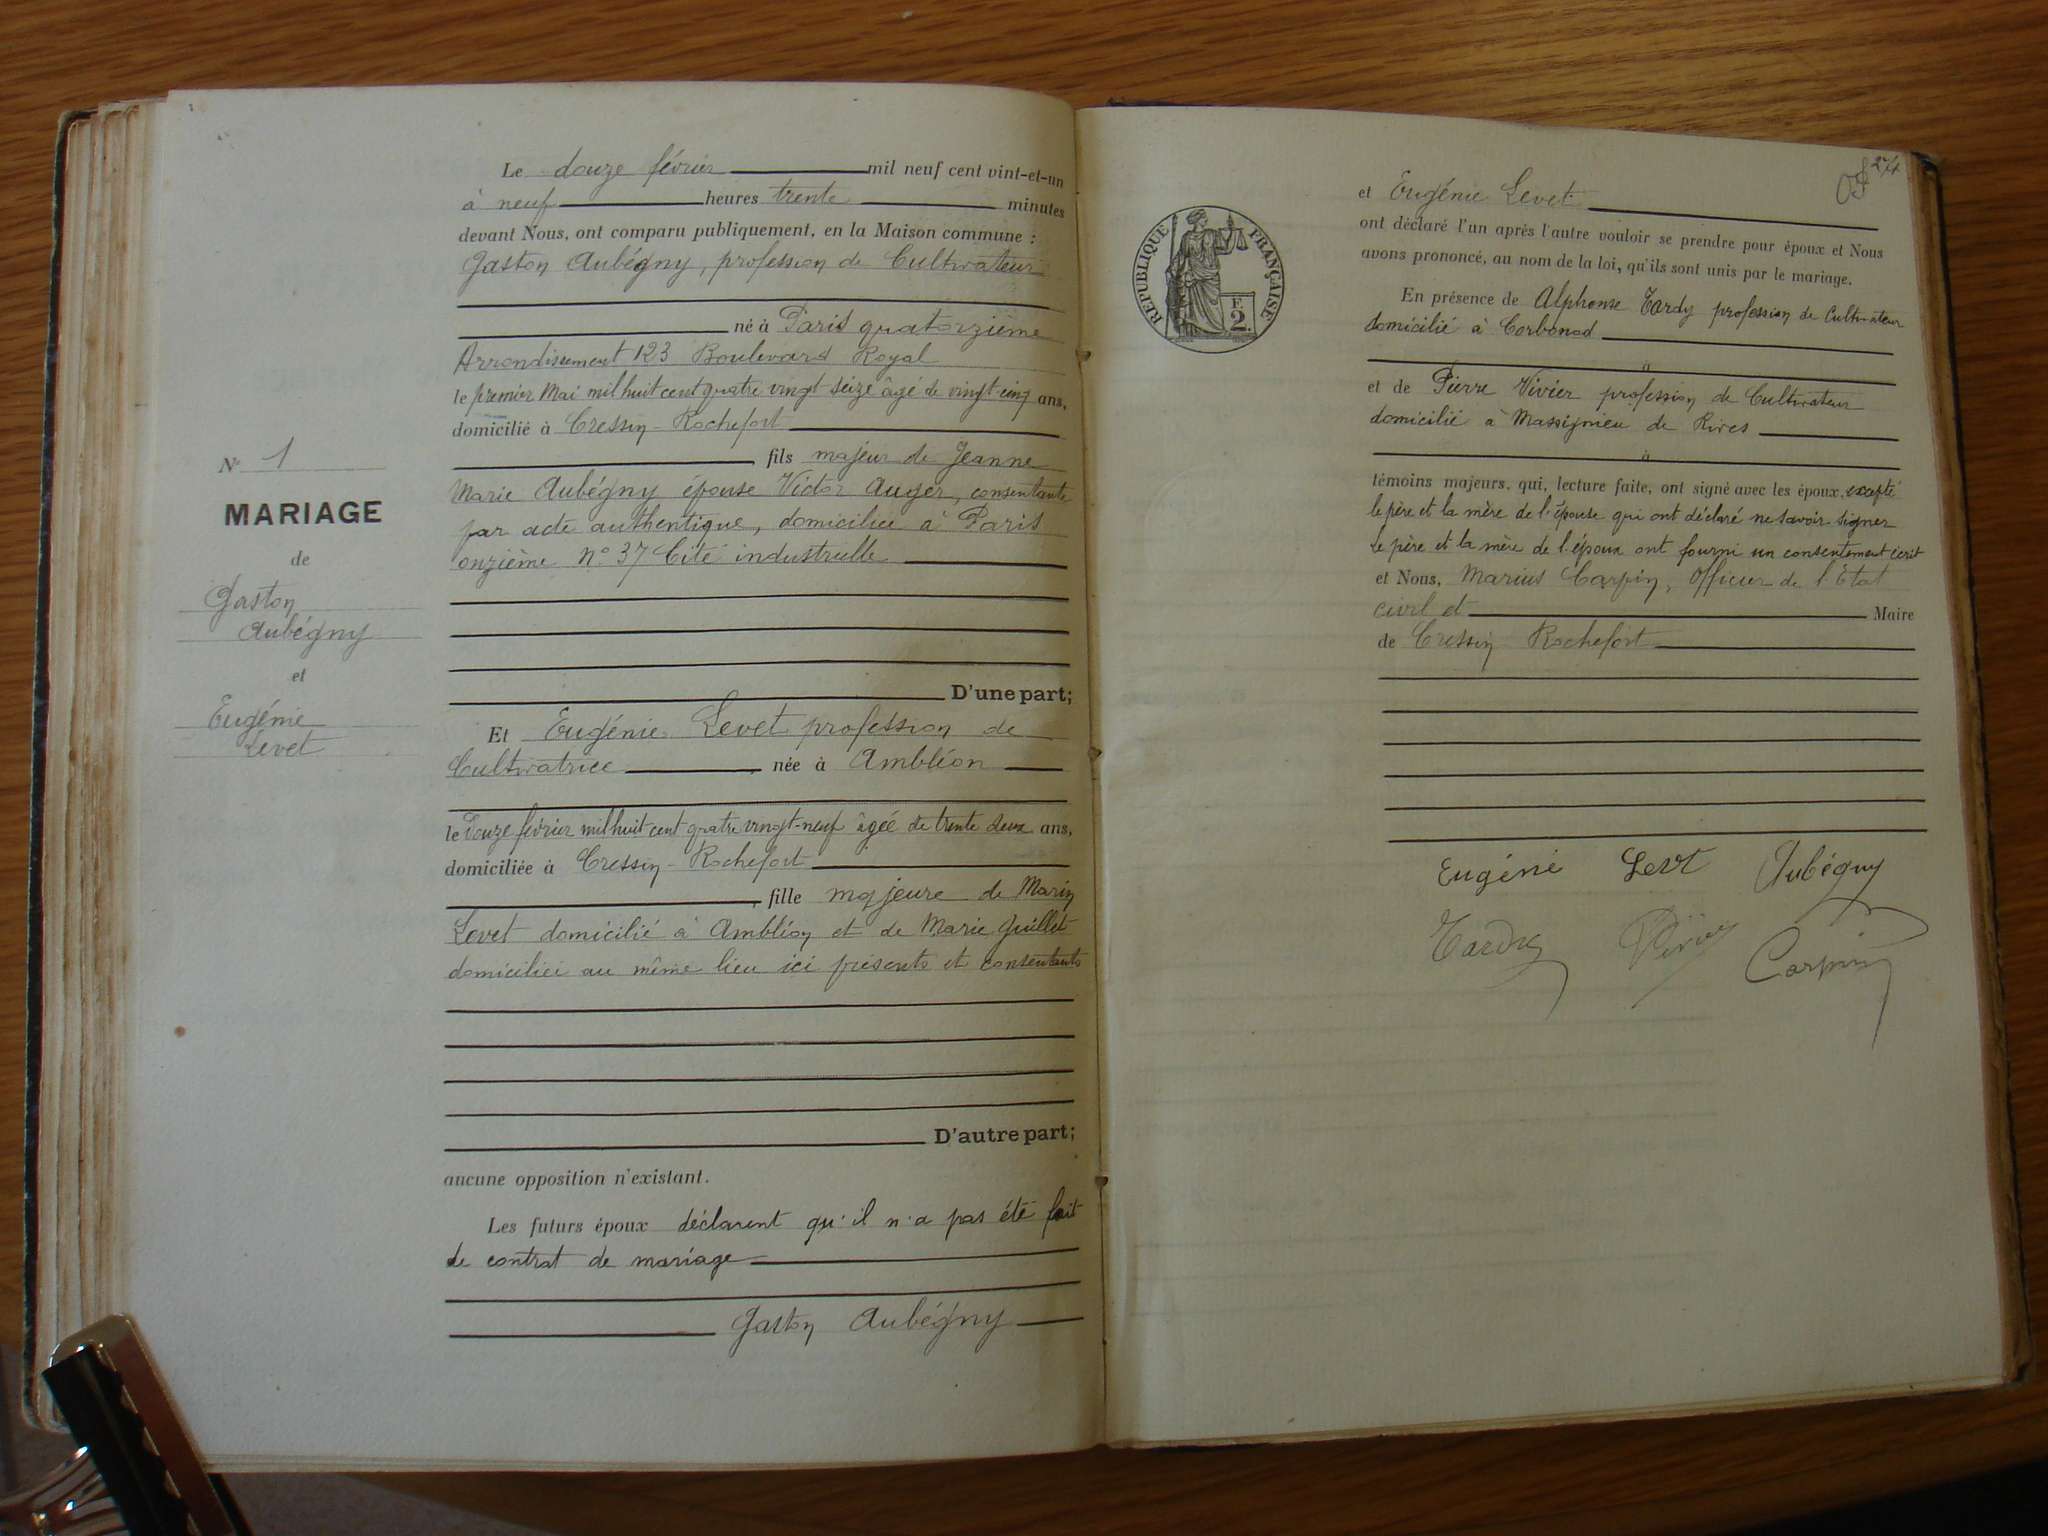 Le douze février mil neuf cent vint-et-un
à neuf heures trente minutes
devant Nous, ont comparu publiquement, en la Maison commune :
Gaston Aubégny, profession de Cultivateur
né à Paris quatorzième
Arrondissement 123 Boulevard Royal
le premier Mai mil huit cent quatre vingt seize âgé de vingt-cinq ans,
domicilié à Cressin-Rochefort
fils majeur de Jeanne
Marie Aubégny épouse Victor Auger, consentante
par acte authentique, domiciliée à Paris
onzième N° 37 Cité industrielle
D'une part;
Et Eugénie Levet profession de
Cultivatrice née à Ambléon
le Douze février mil huit cent quatre vingt-neuf âgée de trente deux ans,
domiciliée à Cressin-Rochefort
fille majeure de Marin
Levet domicilié à Ambléon et de Marie Guillet
domiciliée au même lieu ici présents et consentants
D'autre part;
aucune opposition n'existant.
Les futurs époux déclarent qu'il n'a pas été fait
de contrat de mariage
Gaston Aubégny
N° 1
MARIAGE
de
Gaston
Aubégny
et
Eugénie
Levet
274
REPUBLIQUE FRANÇAISE
F.
2.
et Eugénie Levet
ont déclaré l'un après l'autre vouloir se prendre pour époux et Nous
avons prononcé, au nom de la loi, qu'ils sont unis par le mariage.
En présence de Alphonse Tardy profession de Cultivateur
domicilié à Corbonod
et de Pierre Vivier profession de Cultivateur
domicilié à Massignieu de Rives
témoins majeurs, qui, lecture faite, ont signé avec les époux, excepté
le père et la mère de l'épouse qui ont déclaré ne savoir signer
Le père et la mère de l'époux ont fourni un consentement écrit
et Nous, Marius Carpin, Officier de l'État
civil et Maire
de Cressin Rochefort
Eugénie Levt Aubégny
Tardy Vivier Carpin